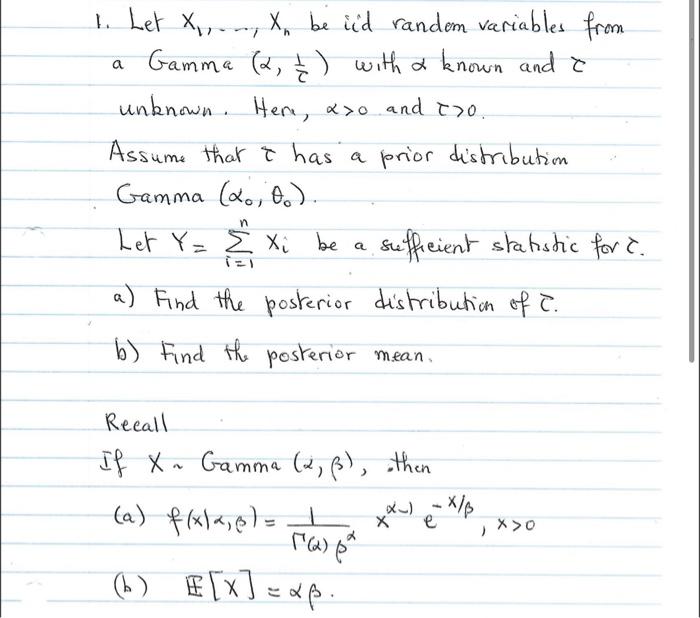 1. Let X₁, ..., Xₙ be iid random variables from
a Gamma (α, 1/τ) with α known and τ
unknown. Here, α>0 and τ>0.
Assume that τ has a prior distribution
Gamma (α₀, θ₀).
Let Y = Σᵢ₌₁ⁿ Xᵢ be a sufficient statistic for τ.
a) Find the posterior distribution of τ.
b) Find the posterior mean.
Recall
If X ~ Gamma (α, β), then
(a) f(x|α,β) = 1/(Γ(α) β^α) x^(α-1) e^(-x/β), x>0
(b) 𝔼[X] = αβ.